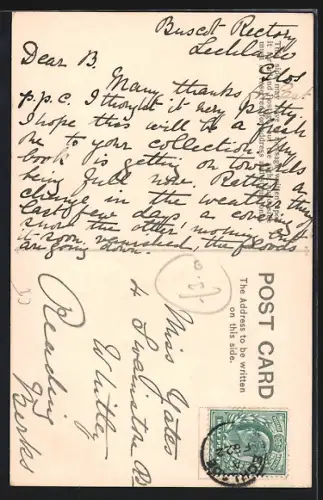 Buscot Rectory
Lechlade
Glos
Dear B.
Many thanks for
p.p.c. I thought it very pretty.
I hope this will be a fresh
one to your collection. My
book is getting on towards
being full now. Rather a
change in the weather these
last few days a covering of
snow the other morning but
it soon vanished, the floods
are going down.
POST CARD
The Address to be written
on this side.
Miss Yates
4 Swainstone Rd
Whitley
Reading
Berks